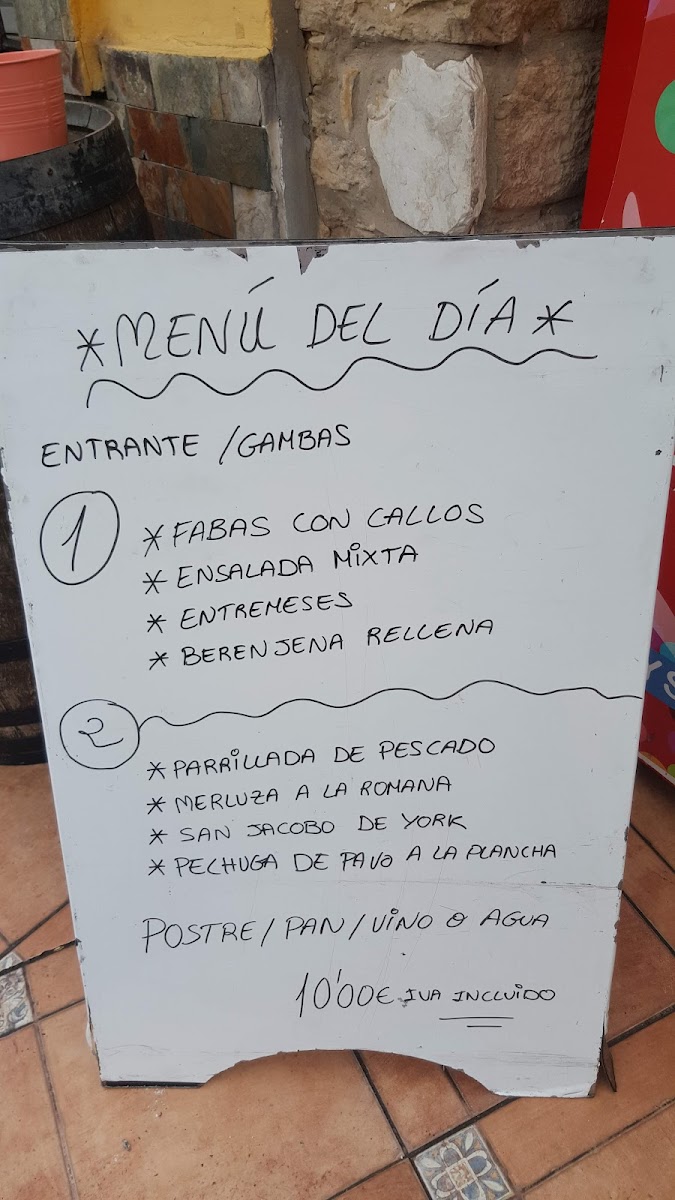 *MENÚ DEL DÍA*
ENTRANTE /GAMBAS
1
*FABAS CON CALLOS
*ENSALADA MIXTA
*ENTREMESES
*BERENJENA RELLENA
2
*PARRILLADA DE PESCADO
*MERLUZA A LA ROMANA
*SAN JACOBO DE YORK
*PECHUGA DE PAVO A LA PLANCHA
POSTRE/PAN/VINO O AGUA
10'00€ IVA INCLUIDO